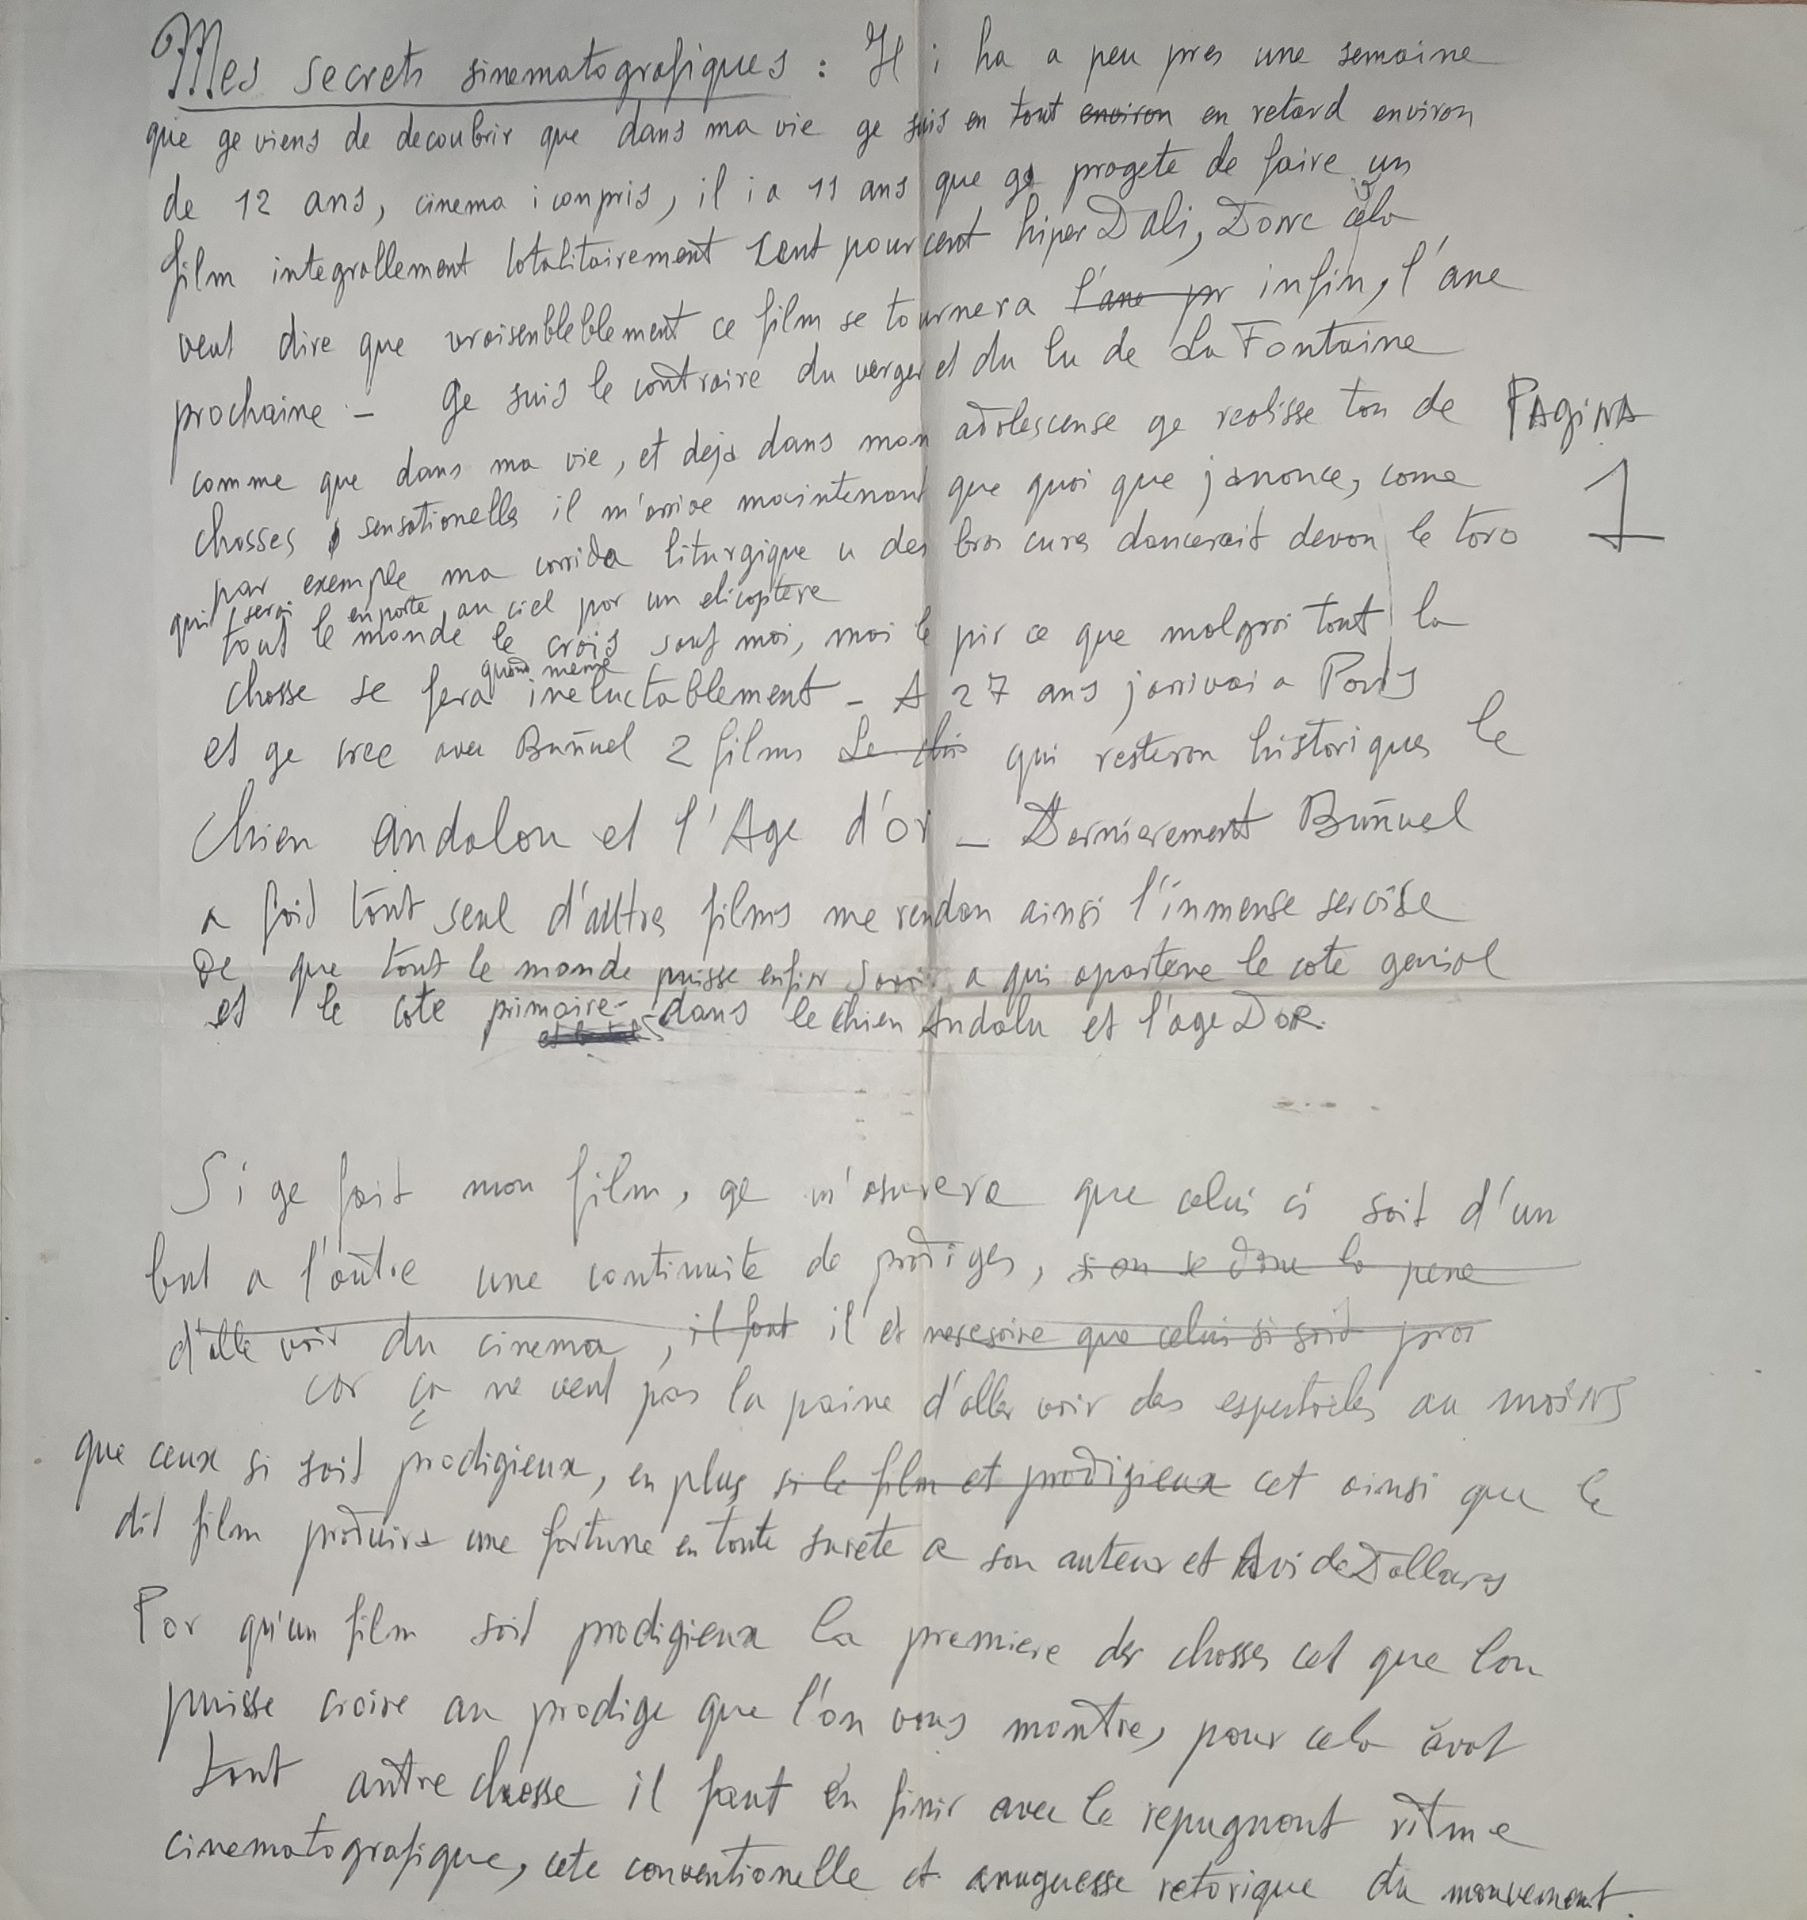 Mes secrets sinematografiques : Il i ha a peu pres une semaine
que ge viens de decoubrir que dans ma vie ge suis en tout environ en retard environ
de 12 ans, cinema i conpris, il i a 11 ans que ge progete de faire un
film integrallement totalitairement cent pour cent hiper Dali, Donc cela
veut dire que vraisenbleblement ce film se tournera l'ane pr infin, l'ane
prochaine - ge suis le contraire du verger et du lu de La Fontaine
comme que dans ma vie, et deja dans mon adolescense ge realisse ton de
PAgiNA
1
chosses sensationelles il m'arrive maintenant que quoi que j'anonce, come
par exemple ma corrida liturgique u des bras cures dancerait devan le toro
qui serai enporte au ciel por un elicoptere
tout le monde le crois sauf moi, moi le pir ce que malgrai tout la
chosse se fera quand meme ineluctablement - A 27 ans j'arrivai a Paris
et ge cree avec Buñuel 2 films Le chi qui resteron historiques le
Chien andalou et l'Age d'or - Dernierement Buñuel
a faid tout seul d'autres films me rendan ainsi l'inmense servise
De que tout le monde puisse enfin savoir a qui apartene le cote genial
et le cote primaire - dans le chien Andalu et l'age DOR.
Si ge fait mon film, ge m'asurere que celui ci soit d'un
but a l'outre une continuite de prodiges, si on se done la pene
d'alle voir du cinema, il faut il et nesesaire que celui si soit prai
car ça ne veut pas la paine d'aller voir des espectacles au moiNS
que ceux si soit prodigieux, en plus si le film et prodigieux cet ainsi que le
dit film produira une fortune en toute surete a son auteur et AvideDollars
Por qu'un film soit prodigieux la premiere des chosses cet que lon
puisse croire au prodige que l'on vous montre, pour cela avat
tout autre chosse il faut en finir avec le repugnant ritme
cinematografique, cete conventionelle et anuguesse retorique du mouvement.